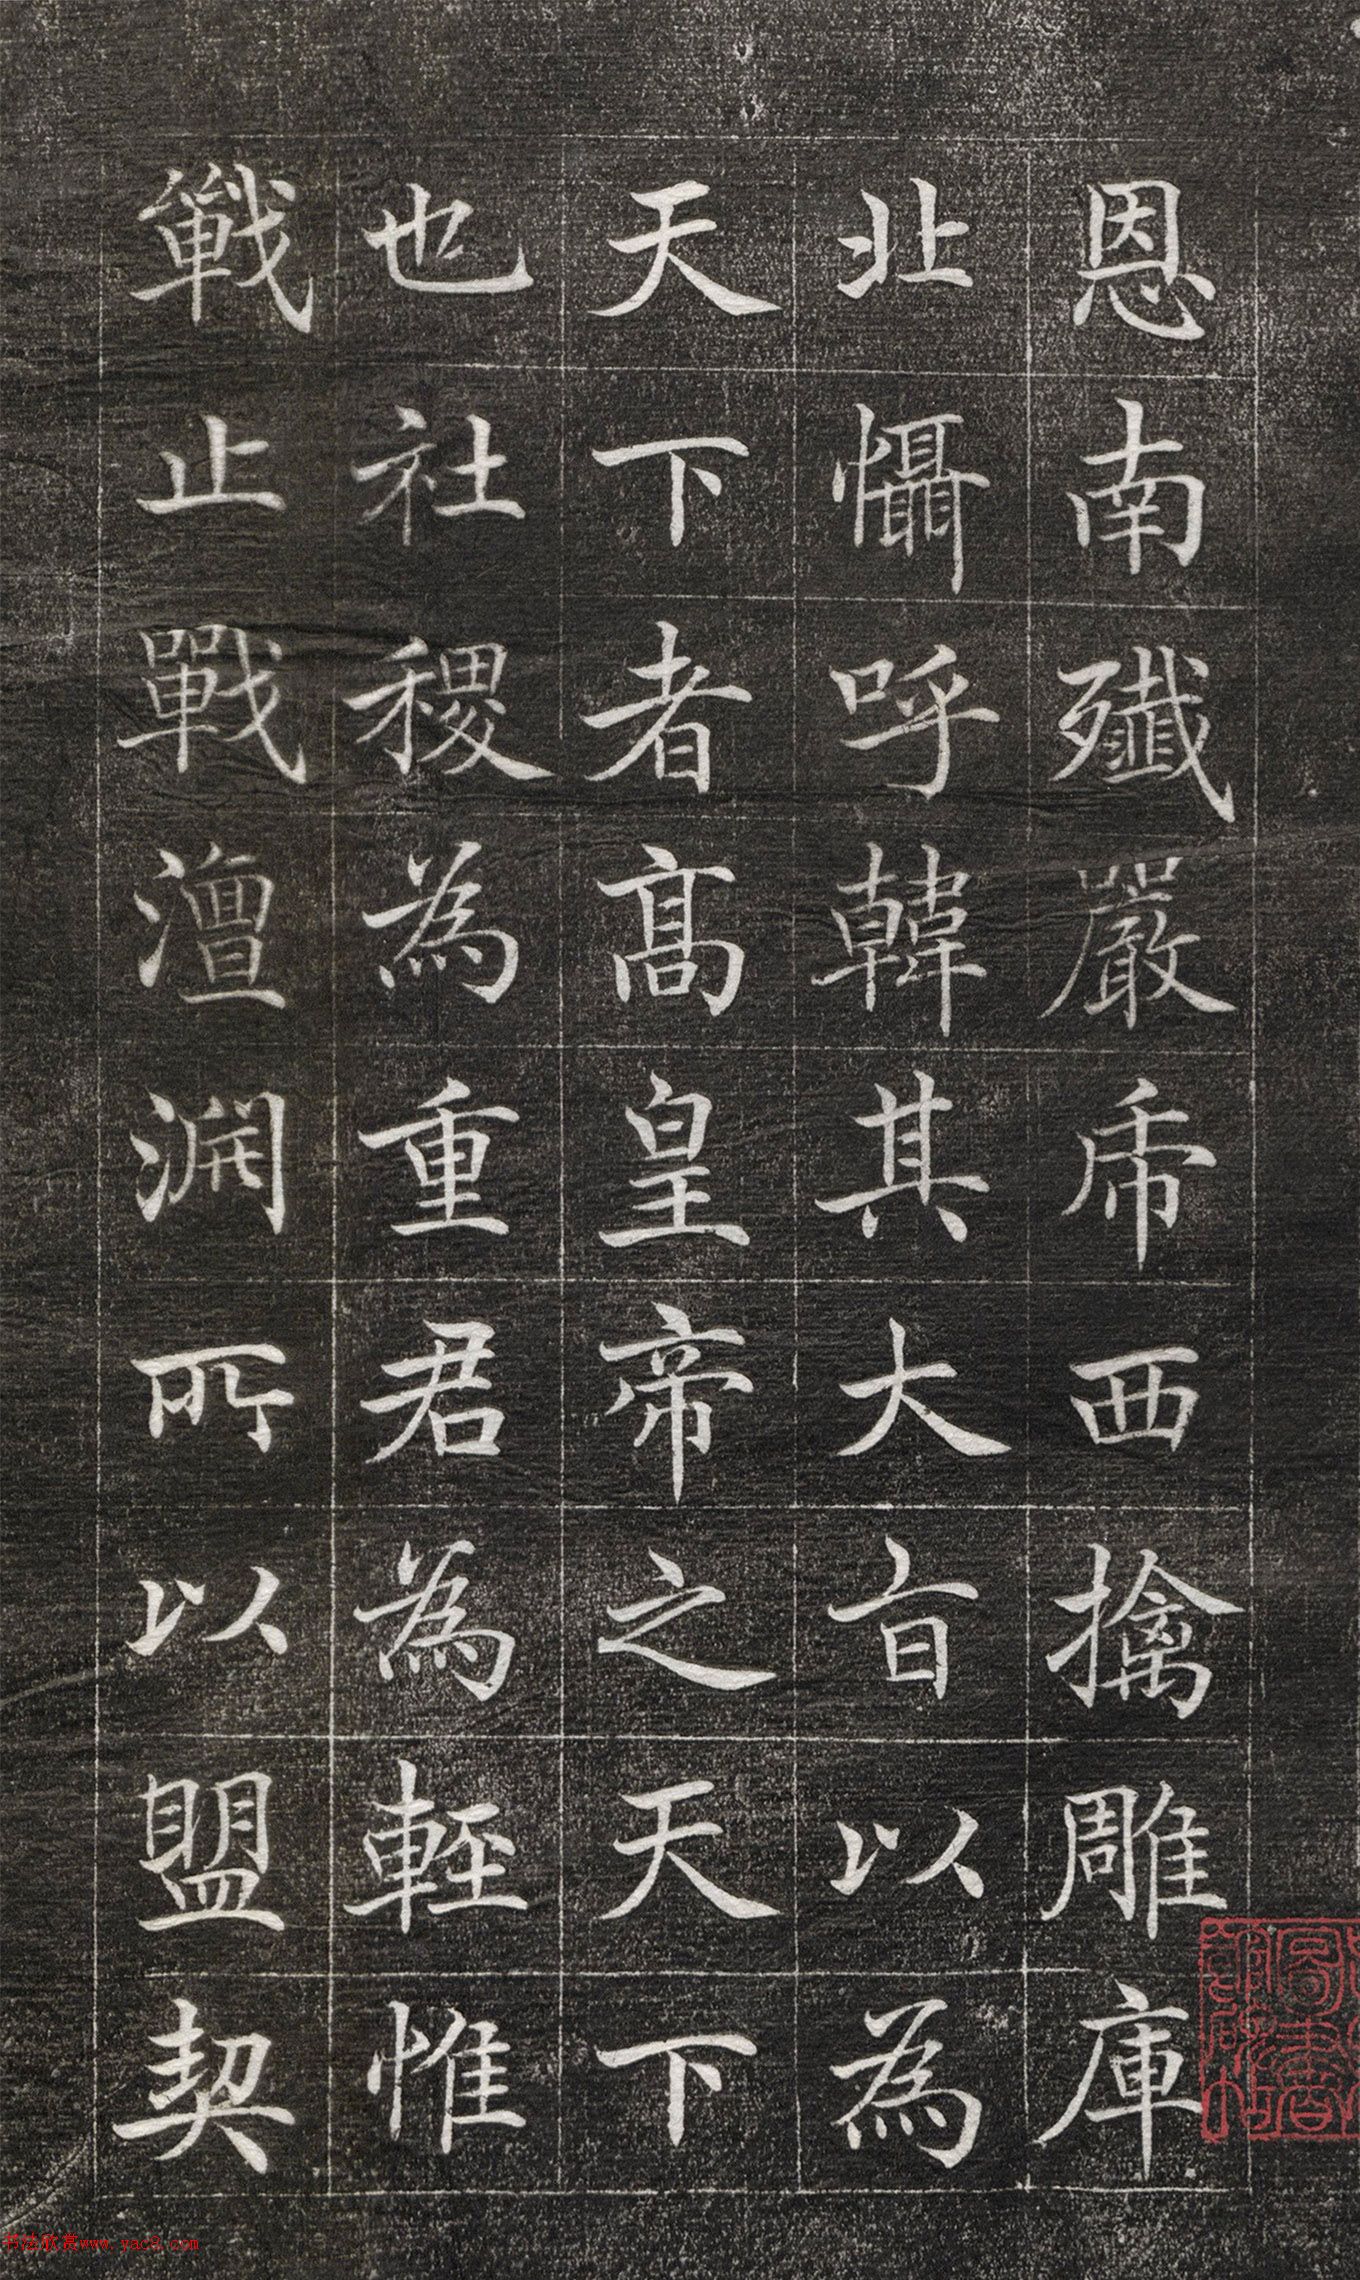 恩南殲嚴乕西擒雕庫
北懾呼韓其大旨以為
天下者髙皇帝之天下
也社稷為重君為輕惟
戰止戰澶淵所以盟契
书法欣赏www.yac8.com